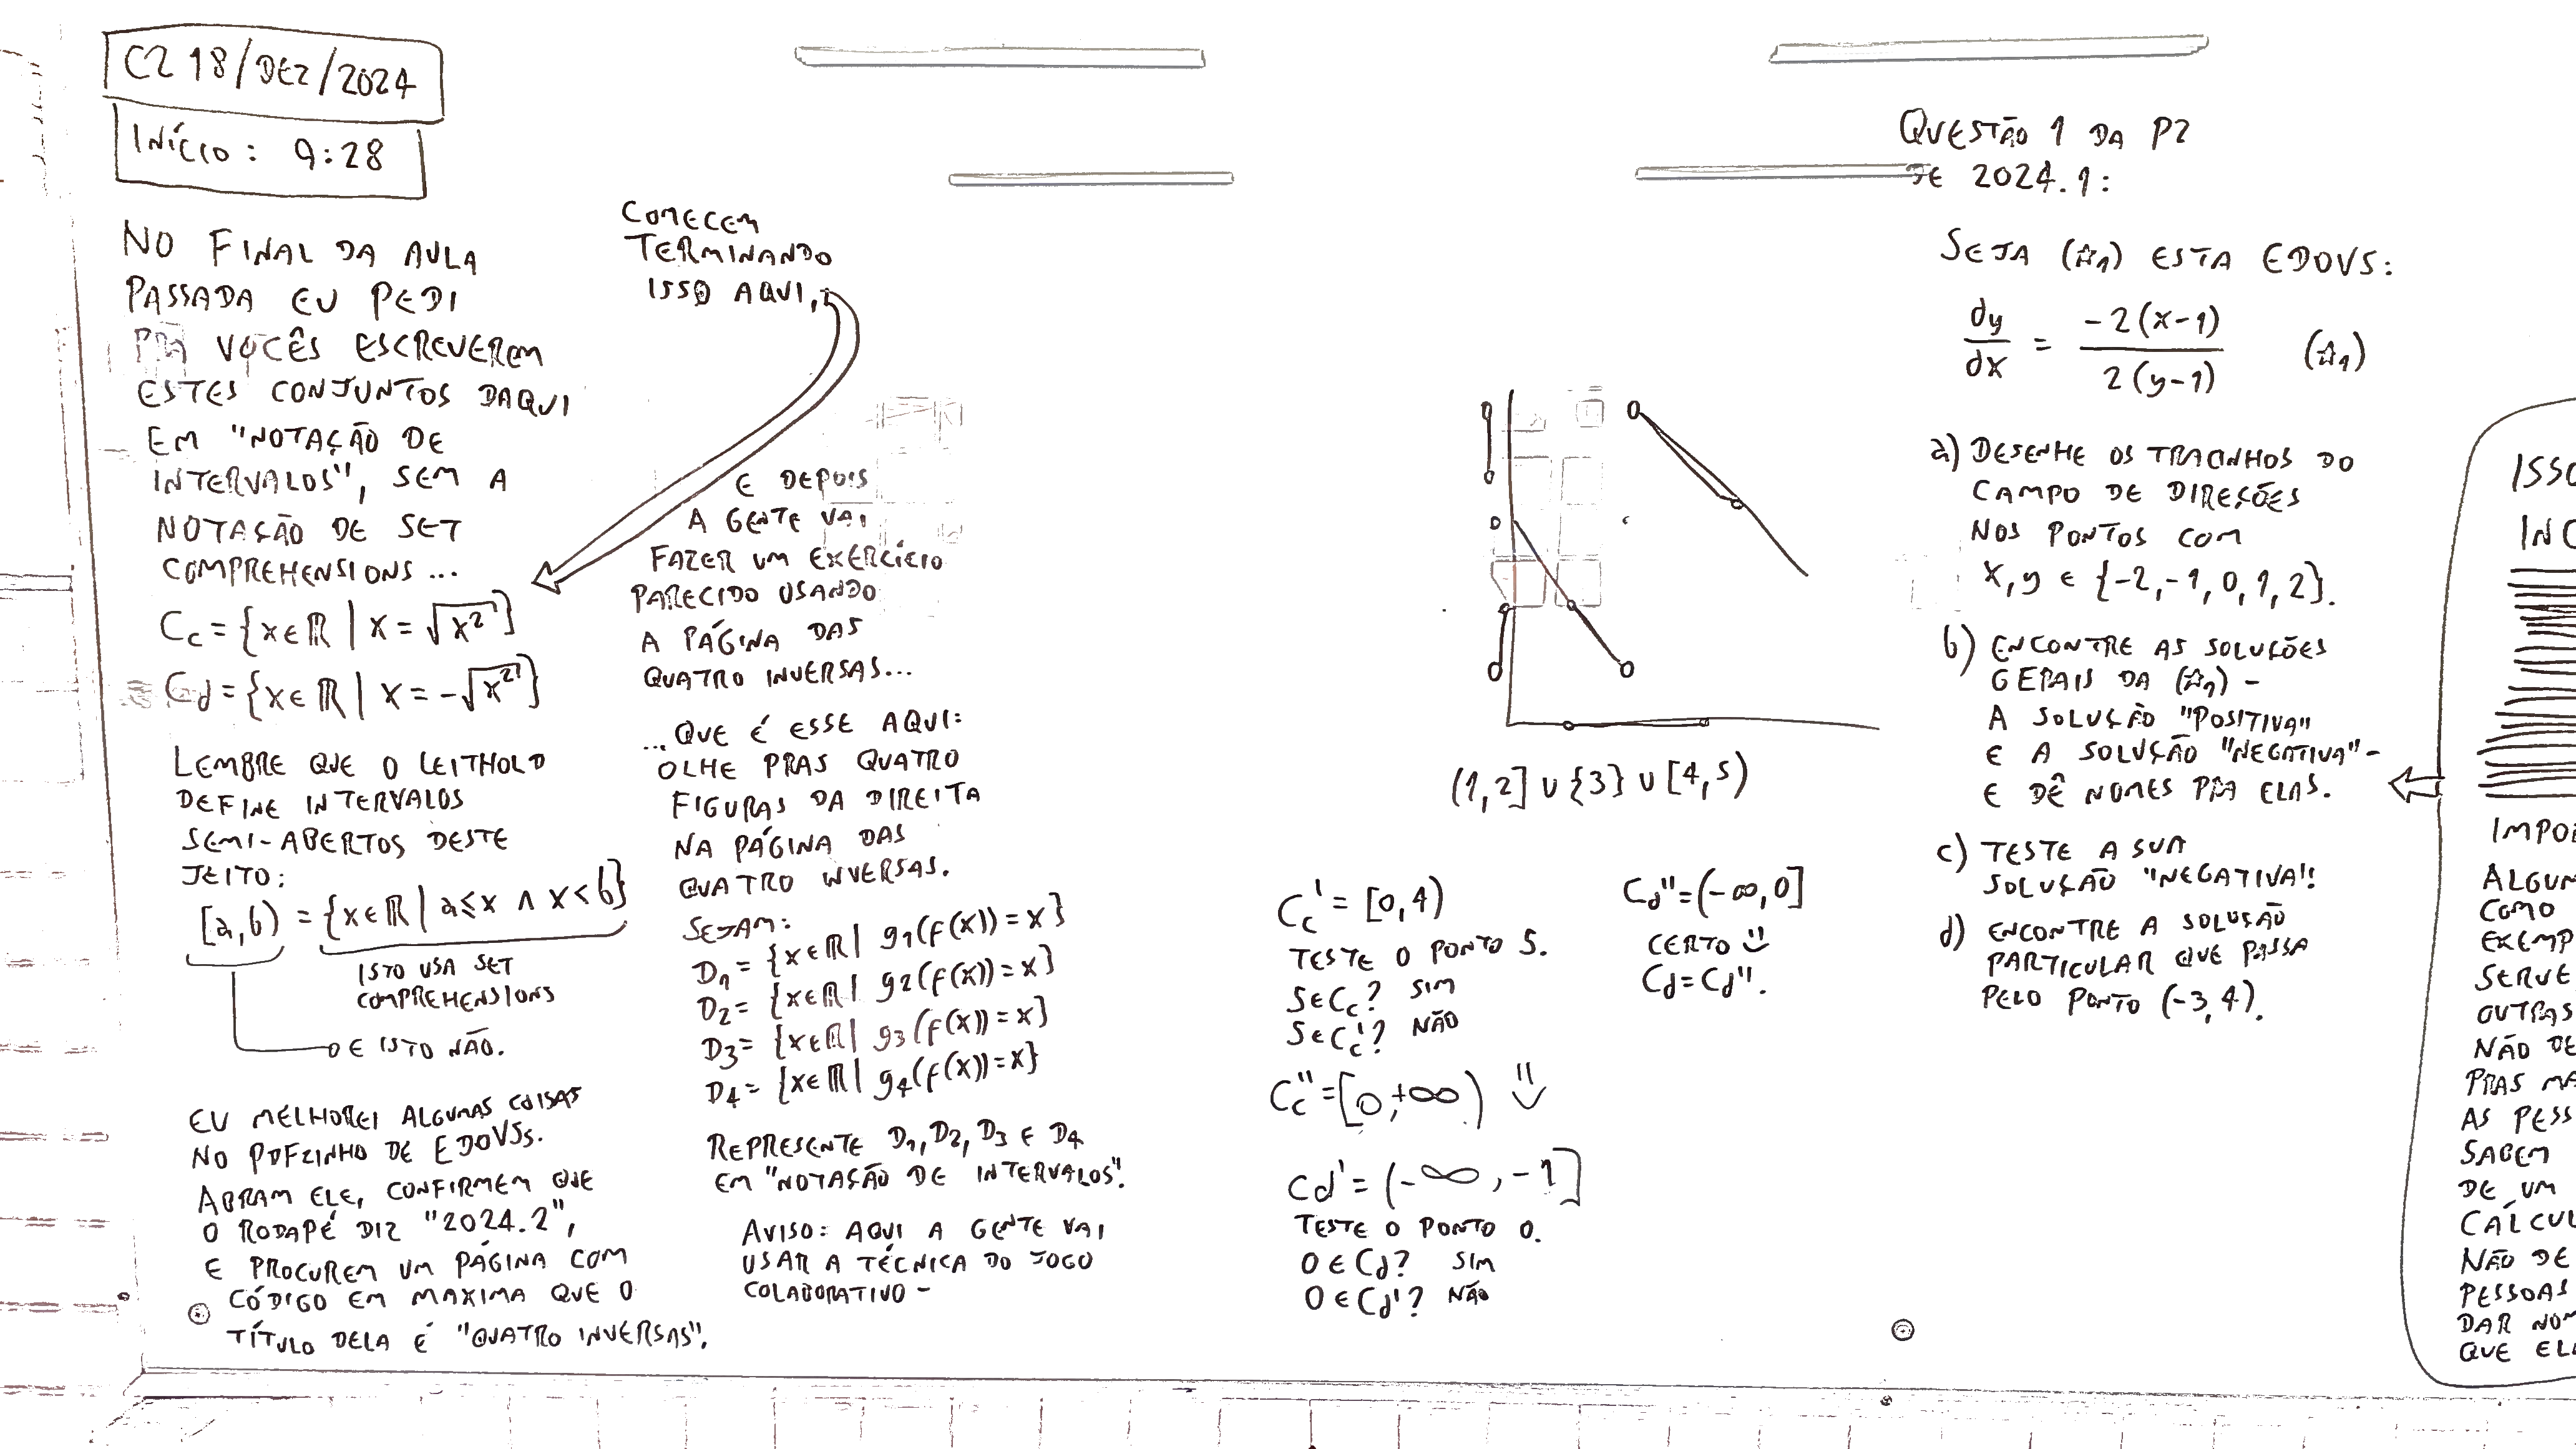 C2 18/DEZ/2024
INÍCIO: 9:28
NO FINAL DA AULA
PASSADA EU PEDI
PRA VOCÊS ESCREVEREM
ESTES CONJUNTOS DAQUI
EM "NOTAÇÃO DE
INTERVALOS", SEM A
NOTAÇÃO DE SET
COMPREHENSIONS...
C_c = {x∈ℝ | x = √x²}
C_d = {x∈ℝ | x = -√x²}
LEMBRE QUE O LEITHOLD
DEFINE INTERVALOS
SEMI-ABERTOS DESTE
JEITO:
[a,b) = {x∈ℝ | a≤x ∧ x<b}
ISTO USA SET
COMPREHENSIONS
E ISTO NÃO.
EU MELHOREI ALGUMAS COISAS
NO PDFZINHO DE EDOVSs.
ABRAM ELE, CONFIRMEM QUE
O RODAPÉ DIZ "2024.2",
E PROCUREM UM PÁGINA COM
CÓDIGO EM MAXIMA QUE O
TÍTULO DELA É "QUATRO INVERSAS".
COMECEM
TERMINANDO
ISSO AQUI,
E DEPOIS
A GENTE VAI
FAZER UM EXERCÍCIO
PARECIDO USANDO
A PÁGINA DAS
QUATRO INVERSAS...
...QUE É ESSE AQUI:
OLHE PRAS QUATRO
FIGURAS DA DIREITA
NA PÁGINA DAS
QUATRO INVERSAS.
SEJAM:
D₁ = {x∈ℝ | g₁(f(x))=x}
D₂ = {x∈ℝ | g₂(f(x))=x}
D₃ = {x∈ℝ | g₃(f(x))=x}
D₄ = {x∈ℝ | g₄(f(x))=x}
REPRESENTE D₁, D₂, D₃ E D₄
EM "NOTAÇÃO DE INTERVALOS".
AVISO: AQUI A GENTE VAI
USAR A TÉCNICA DO JOGO
COLABORATIVO -
(1,2] ∪ {3} ∪ [4,5)
C_c' = [0,4)
TESTE O PONTO 5.
5∈C_c? SIM
5∈C_c'? NÃO
C_c'' = [0,+∞)
C_d' = (-∞,-1]
TESTE O PONTO 0.
0∈C_d? SIM
0∈C_d'? NÃO
C_d'' = (-∞,0]
CERTO
C_d = C_d''.
QUESTÃO 1 DA P2
DE 2024.1:
SEJA (☆₁) ESTA EDOVS:
dy/dx = -2(x-1)/2(y-1) (☆₁)
a) DESENHE OS TRACINHOS DO
CAMPO DE DIREÇÕES
NOS PONTOS COM
x,y ∈ {-2,-1,0,1,2}.
b) ENCONTRE AS SOLUÇÕES
GERAIS DA (☆₁) -
A SOLUÇÃO "POSITIVA"
E A SOLUÇÃO "NEGATIVA" -
E DÊ NOMES PRA ELAS.
c) TESTE A SUA
SOLUÇÃO "NEGATIVA".
d) ENCONTRE A SOLUÇÃO
PARTICULAR QUE PASSA
PELO PONTO (-3,4).
COMO
NÃO DE
DE UM
NÃO DE
PESSOAS